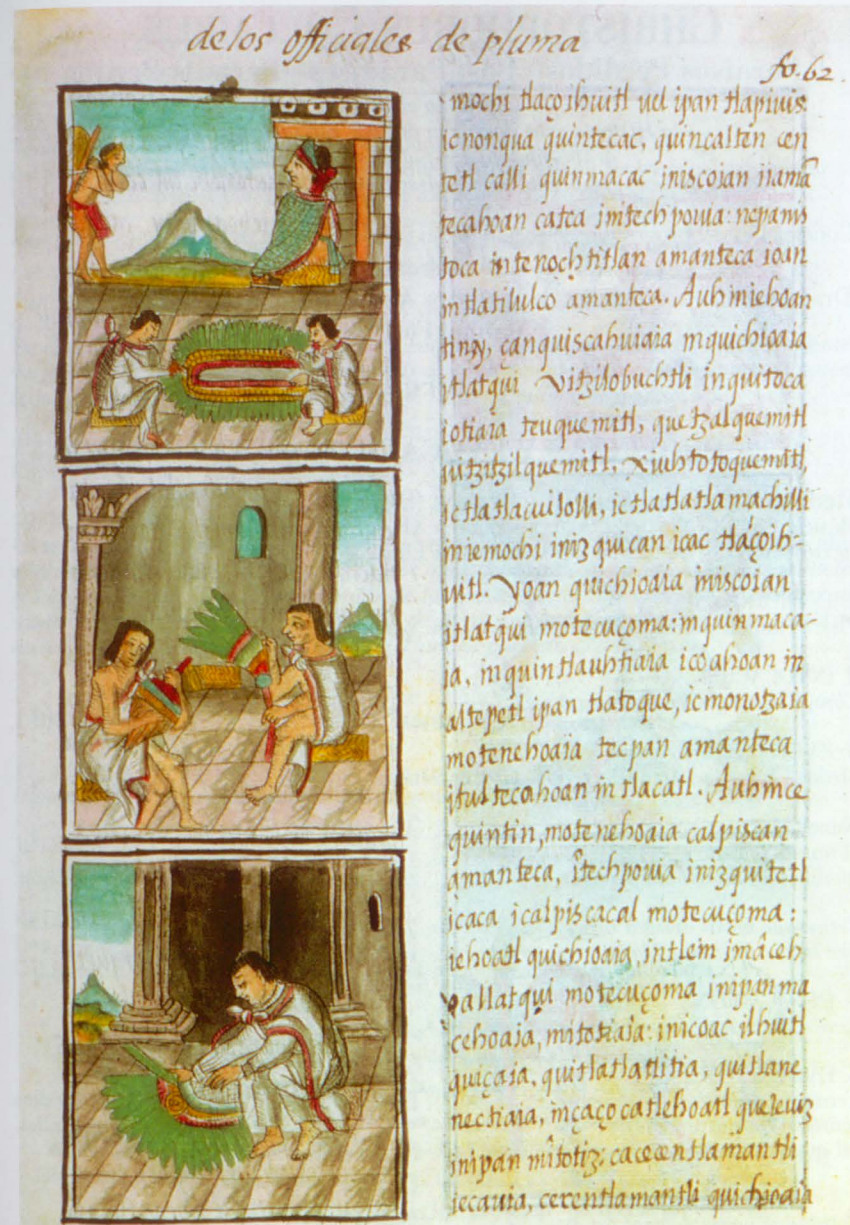 de los officiales de pluma
fo. 62.
mochi tlaçoihuitl vel ipan tlapivis
ic nonqua quintecac, quincalten cen
tetl calli quinmacac iniscoian iiamā
tecahoan catca initech povia: nepanis
toca in tenochtitlan amanteca ioan
in tlatilulco amanteca. Auh in iehoan
tiny, çan quiscahuiaia in quichioaia
itlatqui Vitzilobuchtli in quitoca
iotiaia teuquemitl, quetzalquemitl
vitzitzilquemitl, xiuhtotoquemitl,
ic tlatlacuilolli, ic tlatlatlamachilli
in ie mochi inizquican icac tlaçoih-
vitl. Yoan quichioaia iniscoian
itlatqui motecuçoma: in quinmaca-
ia, in quintlauhtiaia icoahoan in
altepetl ipan tlatoque, ic monotzaia
motenehoaia tecpan amanteca
itultecahoan in tlacatl. Auh in ce
quintin, motenehoaia calpiscan
amanteca, îtechpovia inizquitetl
icaca icalpiscacal motecuçoma:
iehoatl quichioaia, intlein imâceh
vallatqui motecuçoma inipan ma
cehoaia, mitotiaia: inicoac ilhuitl
quiçaia, quitlatlattitia, quitlane
nectiaia, in çaço catlehoatl queleviz
inipan mîtotiz: ca cecentlamantli
iecavia, cecentlamantli quichioaia